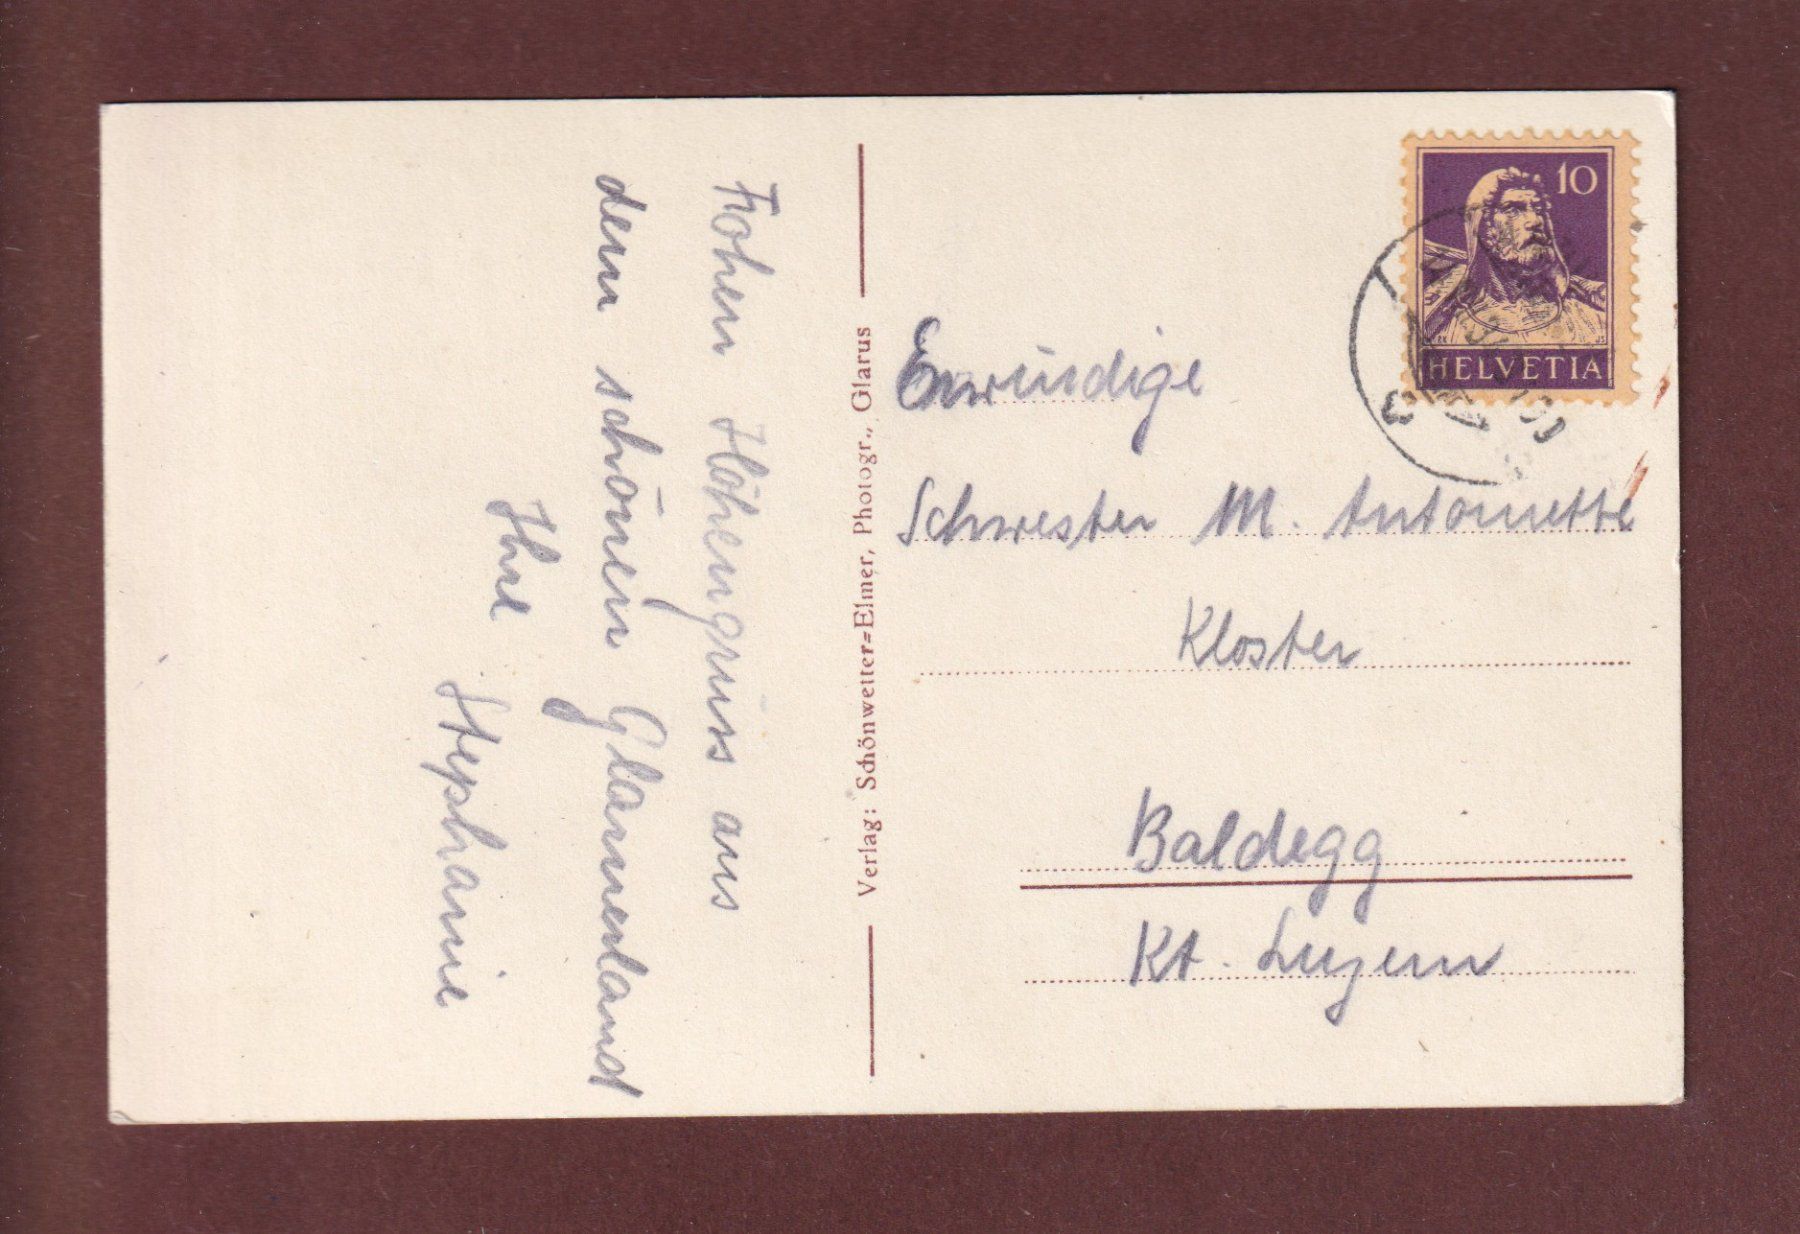 Frohen Höhengruss aus
dem schönen Glarnerland
Ihre
Stephanie
Verlag: Schönwetter=Elmer, Photogr., Glarus
10
HELVETIA
Erwürdige
Schwester M. Antoinette
Kloster
Baldegg
Kt. Luzern